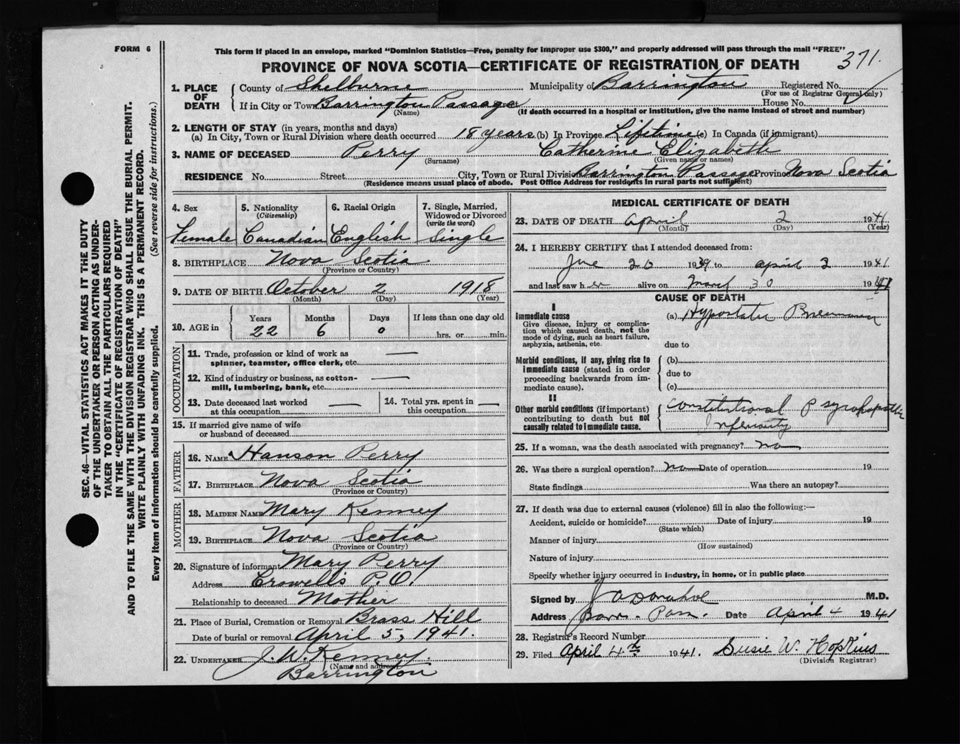 FORM 6
This form if placed in an envelope, marked "Dominion Statistics—Free, penalty for improper use $300," and properly addressed will pass through the mail "FREE"
371.
PROVINCE OF NOVA SCOTIA—CERTIFICATE OF REGISTRATION OF DEATH
1. PLACE OF DEATH
County of Shelburne Municipality of Barrington Registered No.
(For use of Registrar General only)
If in City or Town Barrington Passage House No.
(Name) (If death occurred in a hospital or institution, give the name instead of street and number)
2. LENGTH OF STAY (in years, months and days)
(a) In City, Town or Rural Division where death occurred 18 years (b) In Province Lifetime (c) In Canada (if immigrant)
3. NAME OF DECEASED Perry Catherine Elizabeth
(Surname) (Given name or names)
RESIDENCE No. Street City, Town or Rural Division Barrington Passage Province Nova Scotia
(Residence means usual place of abode. Post Office Address for residents in rural parts not sufficient)
4. Sex 5. Nationality (Citizenship) 6. Racial Origin 7. Single, Married, Widowed or Divorced (write the word)
Female Canadian English Single
8. BIRTHPLACE Nova Scotia
(Province or Country)
9. DATE OF BIRTH October 2 1918
(Month) (Day) (Year)
10. AGE in Years Months Days If less than one day old
22 6 0 hrs. or min.
OCCUPATION
11. Trade, profession or kind of work as spinner, teamster, office clerk, etc. —
12. Kind of industry or business, as cotton-mill, lumbering, bank, etc. —
13. Date deceased last worked at this occupation — 14. Total yrs. spent in this occupation —
15. If married give name of wife or husband of deceased
FATHER
16. NAME Hanson Perry
17. BIRTHPLACE Nova Scotia
(Province or Country)
MOTHER
18. MAIDEN NAME Mary Kenney
19. BIRTHPLACE Nova Scotia
(Province or Country)
20. Signature of informant Mary Perry
Address Crowell's P.O.
Relationship to deceased Mother
21. Place of Burial, Cremation or Removal Brass Hill
Date of burial or removal April 5, 1941.
22. UNDERTAKER J. W. Kenney.
(Name and address)
Barrington
MEDICAL CERTIFICATE OF DEATH
23. DATE OF DEATH April 2 1941
(Month) (Day) (Year)
24. I HEREBY CERTIFY that I attended deceased from:
20 1939 to April 2 1941
and last saw her alive on March 30 1941
CAUSE OF DEATH
I
Immediate cause
Give disease, injury or complication which caused death, not the mode of dying, such as heart failure, asphyxia, asthenia, etc.
(a) Hypostatic Pneumonia
due to
Morbid conditions, if any, giving rise to immediate cause (stated in order proceeding backwards from immediate cause).
(b)
due to
(c)
II
Other morbid conditions (if important) contributing to death but not causally related to immediate cause.
Constitutional Psychopathic
Inferiority
25. If a woman, was the death associated with pregnancy? no
26. Was there a surgical operation? no Date of operation 19
State findings Was there an autopsy?
27. If death was due to external causes (violence) fill in also the following:—
Accident, suicide or homicide? Date of injury 19
(State which)
Manner of injury
(How sustained)
Nature of injury
Specify whether injury occurred in industry, in home, or in public place
Signed by J A Donahoe M.D.
Address Barr. Pass. Date April 4 1941
28. Registrar's Record Number
29. Filed April 4th 1941. Susie W. Hopkins
(Division Registrar)
SEC. 46—VITAL STATISTICS ACT MAKES IT THE DUTY
OF THE UNDERTAKER OR PERSON ACTING AS UNDER-
TAKER TO OBTAIN ALL THE PARTICULARS REQUIRED
IN THE "CERTIFICATE OF REGISTRATION OF DEATH"
AND TO FILE THE SAME WITH THE DIVISION REGISTRAR WHO SHALL ISSUE THE BURIAL PERMIT.
WRITE PLAINLY WITH UNFADING INK. THIS IS A PERMANENT RECORD.
Every item of information should be carefully supplied. (See reverse side for instructions.)